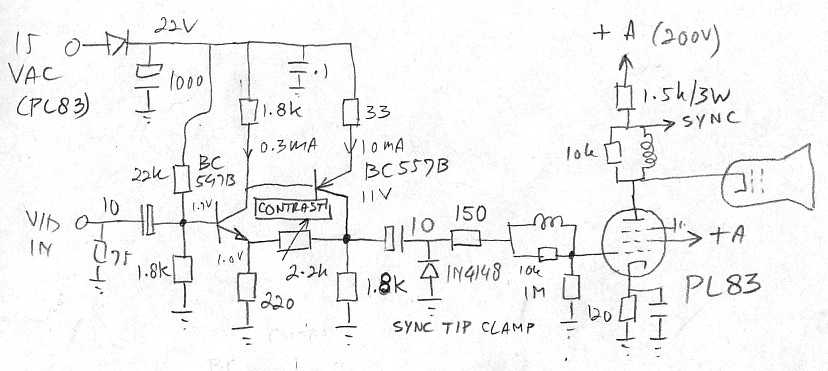 15
VAC
(PL83)
22V
1000
.1
1.8k
33
0.3mA
10mA
22k
BC
547B
BC557B
11V
+A (200V)
1.5k/3W
SYNC
10k
VID
IN
10
75
1.8k
1.7V
1.0V
CONTRAST
2.2k
220
1.8k
10
150
1N4148
10k
1M
SYNC TIP CLAMP
+A
PL83
120